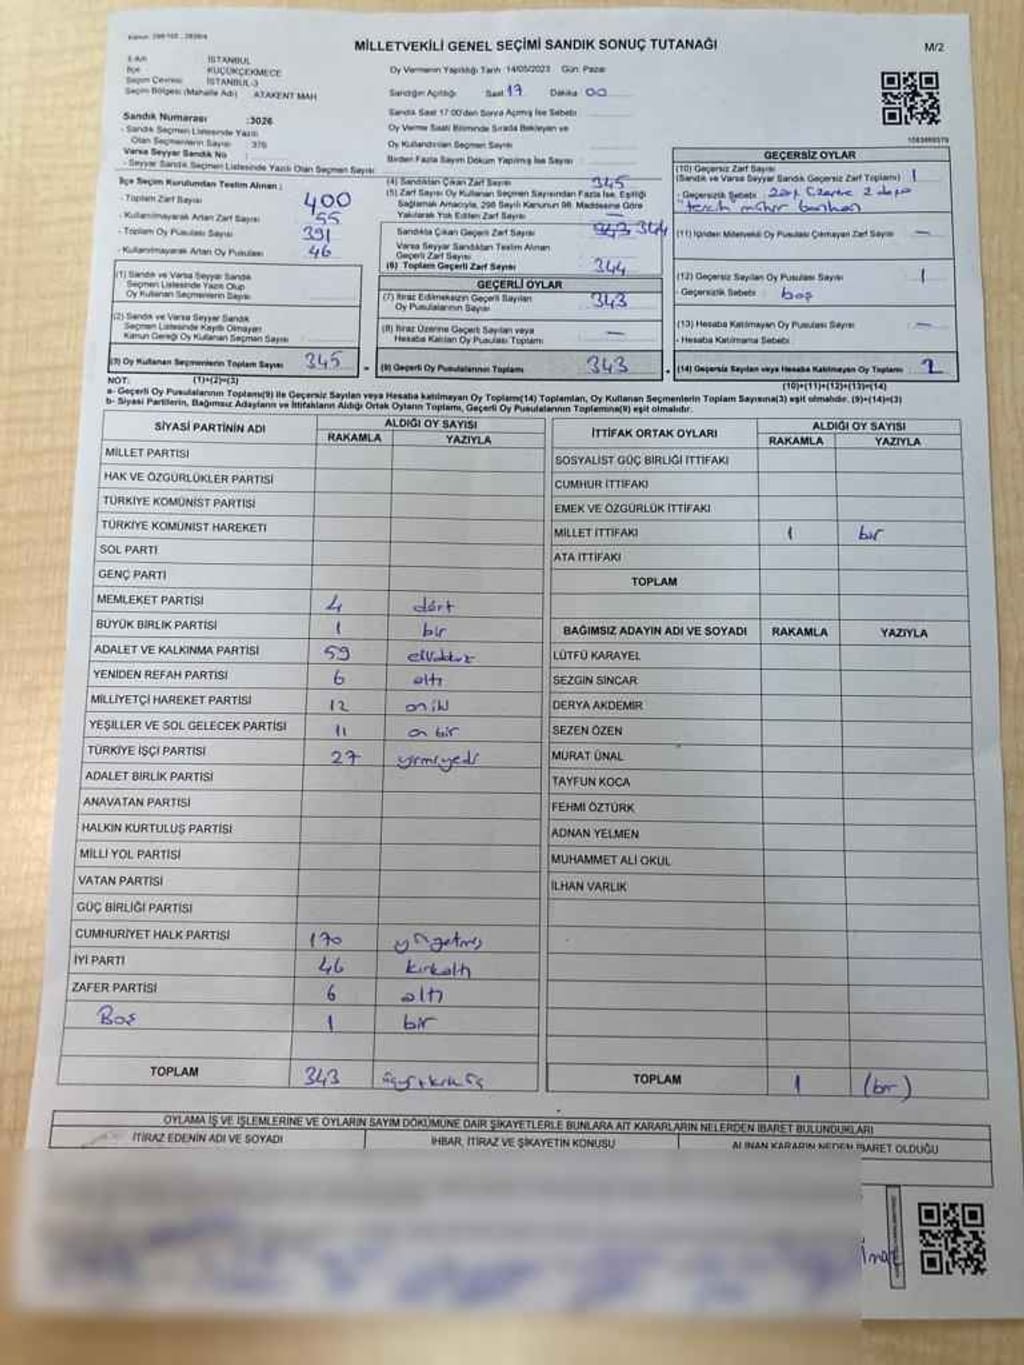 MİLLETVEKİLİ GENEL SEÇİMİ SANDIK SONUÇ TUTANAĞI
M/2
İli İSTANBUL
İlçe KÜÇÜKÇEKMECE
Seçim Çevresi İSTANBUL-3
Seçim Bölgesi (Mahalle Adı) ATAKENT MAH
Sandık Numarası :3026
- Sandık Seçmen Listesinde Yazılı
Olan Seçmenlerin Sayısı 376
Varsa Seyyar Sandık No :
- Seyyar Sandık Seçmen Listesinde Yazılı Olan Seçmen Sayısı
Oy Vermenin Yapıldığı Tarih :14/05/2023 Gün: Pazar
Sandığın Açıldığı Saat 17 Dakika 00
Sandık Saat 17:00'den Sonra Açılmış İse Sebebi
Oy Verme Saati Bitiminde Sırada Bekleyen ve
Oy Kullandırılan Seçmen Sayısı
Birden Fazla Sayım Döküm Yapılmış İse Sayısı
İlçe Seçim Kurulundan Teslim Alınan :
- Toplam Zarf Sayısı 400
- Kullanılmayarak Artan Zarf Sayısı 55
- Toplam Oy Pusulası Sayısı 391
- Kullanılmayarak Artan Oy Pusulası 46
(1) Sandık ve Varsa Seyyar Sandık
Seçmen Listesinde Yazılı Olup
Oy Kullanan Seçmenlerin Sayısı
(2) Sandık ve Varsa Seyyar Sandık
Seçmen Listesinde Kayıtlı Olmayan
Kanun Gereği Oy Kullanan Seçmen Sayısı
(3) Oy Kullanan Seçmenlerin Toplam Sayısı 345
(1)+(2)=(3)
(4) Sandıktan Çıkan Zarf Sayısı 345
(5) Zarf Sayısı Oy Kullanan Seçmen Sayısından Fazla İse, Eşitliği
Sağlamak Amacıyla, 298 Sayılı Kanunun 98. Maddesine Göre
Yakılarak Yok Edilen Zarf Sayısı —
Sandıkta Çıkan Geçerli Zarf Sayısı 344
Varsa Seyyar Sandıktan Teslim Alınan
Geçerli Zarf Sayısı
(6) Toplam Geçerli Zarf Sayısı 344
GEÇERLİ OYLAR
(7) İtiraz Edilmeksizin Geçerli Sayılan
Oy Pusulalarının Sayısı 343
(8) İtiraz Üzerine Geçerli Sayılan veya
Hesaba Katılan Oy Pusulası Toplamı —
(9) Geçerli Oy Pusulalarının Toplamı 343
GEÇERSİZ OYLAR
(10) Geçersiz Zarf Sayısı
(Sandık ve Varsa Seyyar Sandık Geçersiz Zarf Toplamı) 1
- Geçersizlik Sebebi: zarf üzerine 2
tercih mühür
(11) İçinden Milletvekili Oy Pusulası Çıkmayan Zarf Sayısı —
(12) Geçersiz Sayılan Oy Pusulası Sayısı 1
- Geçersizlik Sebebi: boş
(13) Hesaba Katılmayan Oy Pusulası Sayısı —
- Hesaba Katılmama Sebebi
(14) Geçersiz Sayılan veya Hesaba Katılmayan Oy Toplamı 2
(10)+(11)+(12)+(13)=(14)
NOT:
a- Geçerli Oy Pusulalarının Toplamı(9) ile Geçersiz Sayılan veya Hesaba katılmayan Oy Toplamı(14) Toplamları, Oy Kullanan Seçmenlerin Toplam Sayısına(3) eşit olmalıdır. (9)+(14)=(3)
b- Siyasi Partilerin, Bağımsız Adayların ve İttifakların Aldığı Ortak Oyların Toplamı, Geçerli Oy Pusulalarının Toplamına(9) eşit olmalıdır.
SİYASİ PARTİNİN ADI ALDIĞI OY SAYISI
RAKAMLA YAZIYLA
MİLLET PARTİSİ
HAK VE ÖZGÜRLÜKLER PARTİSİ
TÜRKİYE KOMÜNİST PARTİSİ
TÜRKİYE KOMÜNİST HAREKETİ
SOL PARTİ
GENÇ PARTİ
MEMLEKET PARTİSİ 4 dört
BÜYÜK BİRLİK PARTİSİ 1 bir
ADALET VE KALKINMA PARTİSİ 59 ellidokuz
YENİDEN REFAH PARTİSİ 6 altı
MİLLİYETÇİ HAREKET PARTİSİ 12 oniki
YEŞİLLER VE SOL GELECEK PARTİSİ 11 on bir
TÜRKİYE İŞÇİ PARTİSİ 27 yirmiyedi
ADALET BİRLİK PARTİSİ
ANAVATAN PARTİSİ
HALKIN KURTULUŞ PARTİSİ
MİLLİ YOL PARTİSİ
VATAN PARTİSİ
GÜÇ BİRLİĞİ PARTİSİ
CUMHURİYET HALK PARTİSİ 170 yüzyetmiş
İYİ PARTİ 46 kırkaltı
ZAFER PARTİSİ 6 altı
Boş 1 bir
TOPLAM 343 üçyüzkırküç
İTTİFAK ORTAK OYLARI ALDIĞI OY SAYISI
RAKAMLA YAZIYLA
SOSYALİST GÜÇ BİRLİĞİ İTTİFAKI
CUMHUR İTTİFAKI
EMEK VE ÖZGÜRLÜK İTTİFAKI
MİLLET İTTİFAKI 1 bir
ATA İTTİFAKI
TOPLAM
BAĞIMSIZ ADAYIN ADI VE SOYADI RAKAMLA YAZIYLA
LÜTFÜ KARAYEL
SEZGİN SİNCAR
DERYA AKDEMİR
SEZEN ÖZEN
MURAT ÜNAL
TAYFUN KOCA
FEHMİ ÖZTÜRK
ADNAN YELMEN
MUHAMMET ALİ OKUL
İLHAN VARLIK
TOPLAM 1 (bir)
OYLAMA İŞ VE İŞLEMLERİNE VE OYLARIN SAYIM DÖKÜMÜNE DAİR ŞİKAYETLERLE BUNLARA AİT KARARLARIN NELERDEN İBARET BULUNDUKLARI
İTİRAZ EDENİN ADI VE SOYADI İHBAR, İTİRAZ VE ŞİKAYETİN KONUSU ALINAN KARARIN NEDEN İBARET OLDUĞU